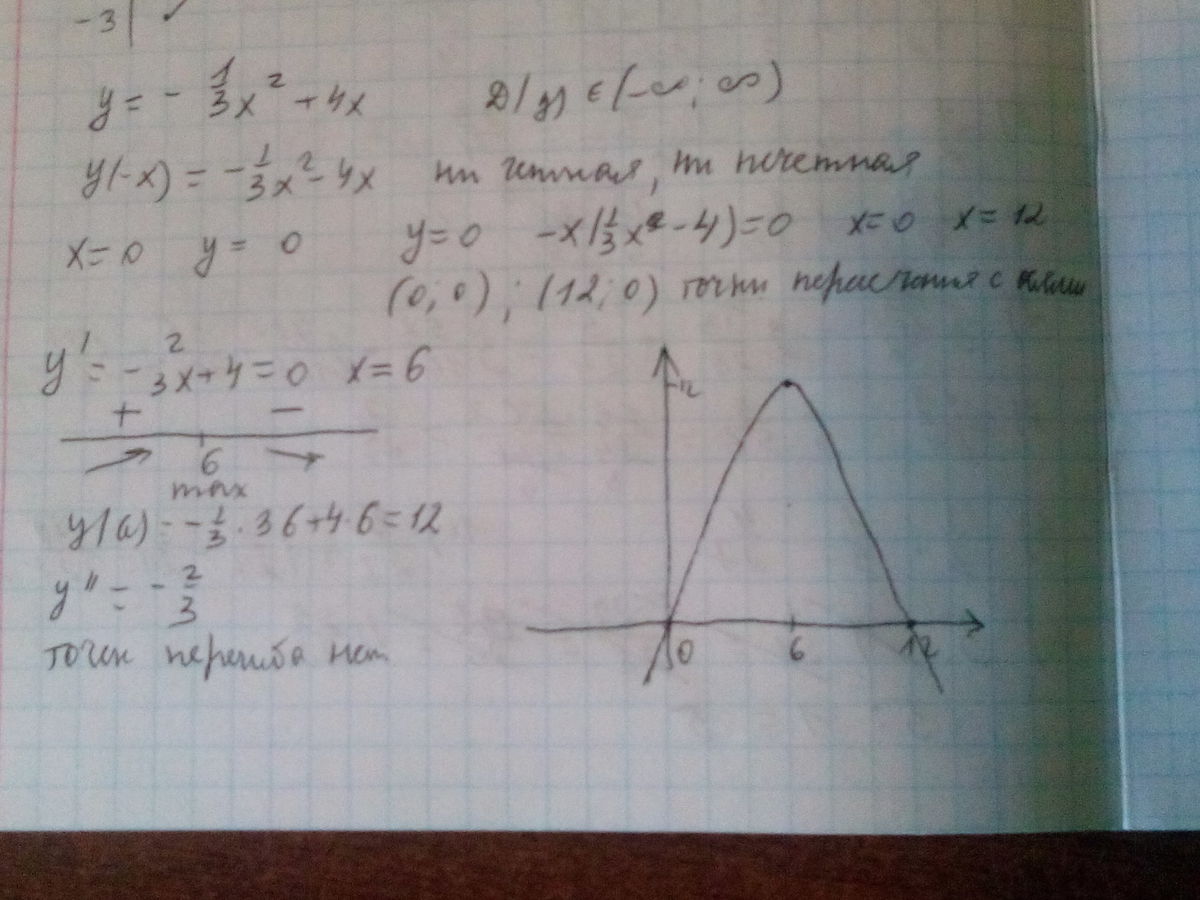 -3
y = - 1/3 x² + 4x D(y) ∈ (-∞; ∞)
y(-x) = - 1/3 x² - 4x ни четная, ни нечетная
x=0 y = 0 y=0 -x(1/3 x - 4)=0 x=0 x=12
(0; 0) ; (12; 0) точки пересечения с
y' = - 2/3 x + 4 = 0 x = 6
+ −
6
max
y(6) = - 1/3 · 36 + 4·6 = 12
y'' = - 2/3
точек перегиба нет
12
0 6 12